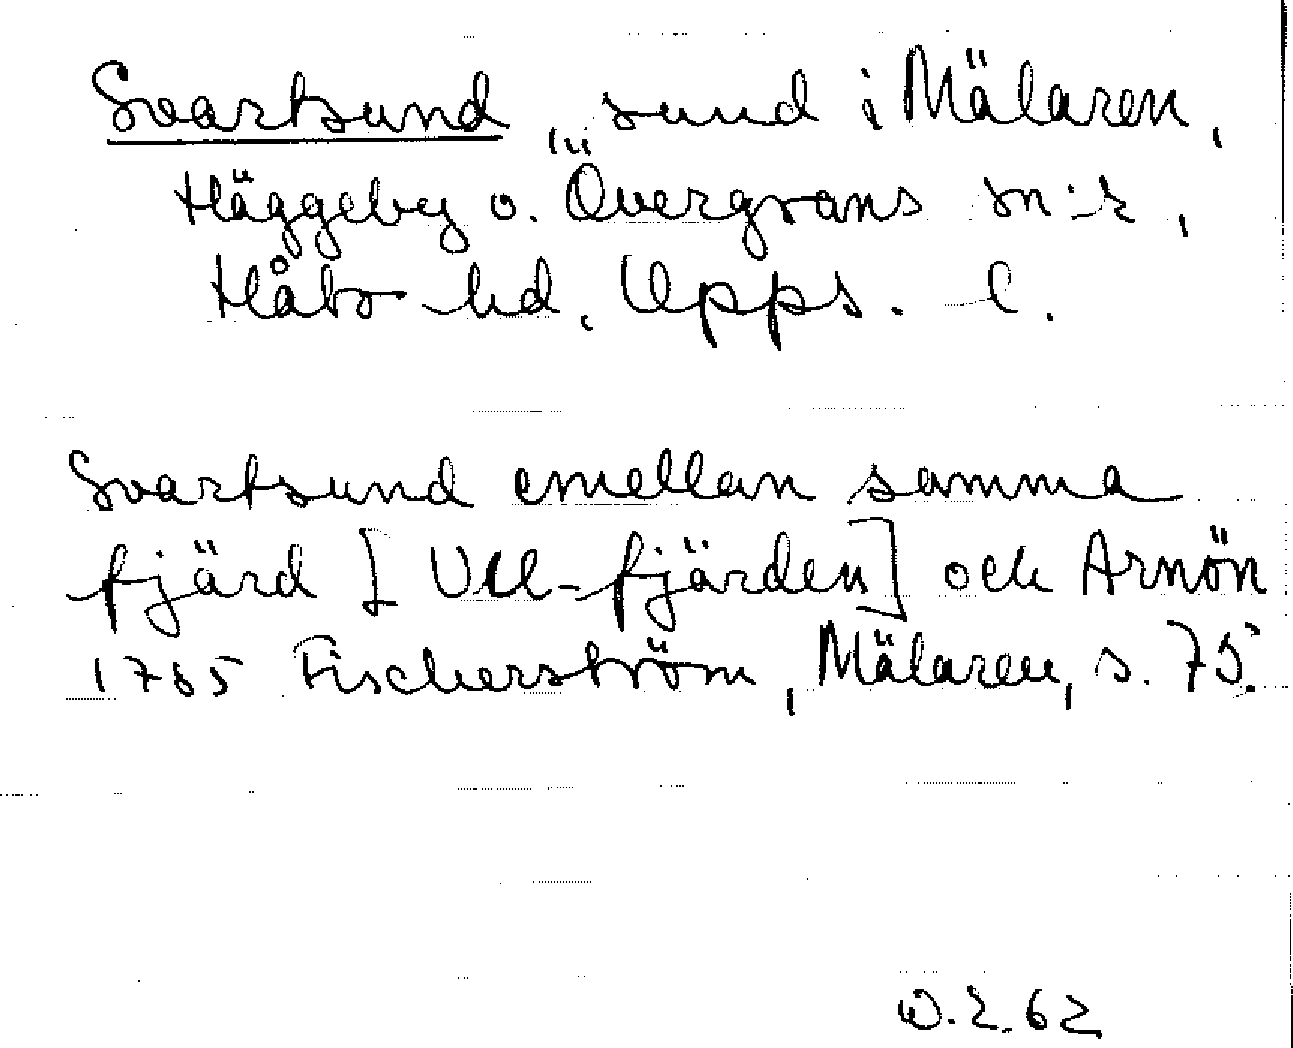 Svartsund, sund i Mälaren,
Häggeby o. Övergrans sn:r,
Håbo hd, Upps. l.
Svartsund emellan samma
fjärd [Ull-fjärden] och Arnön
1765 Fischerström, Mälaren, s. 75.
62